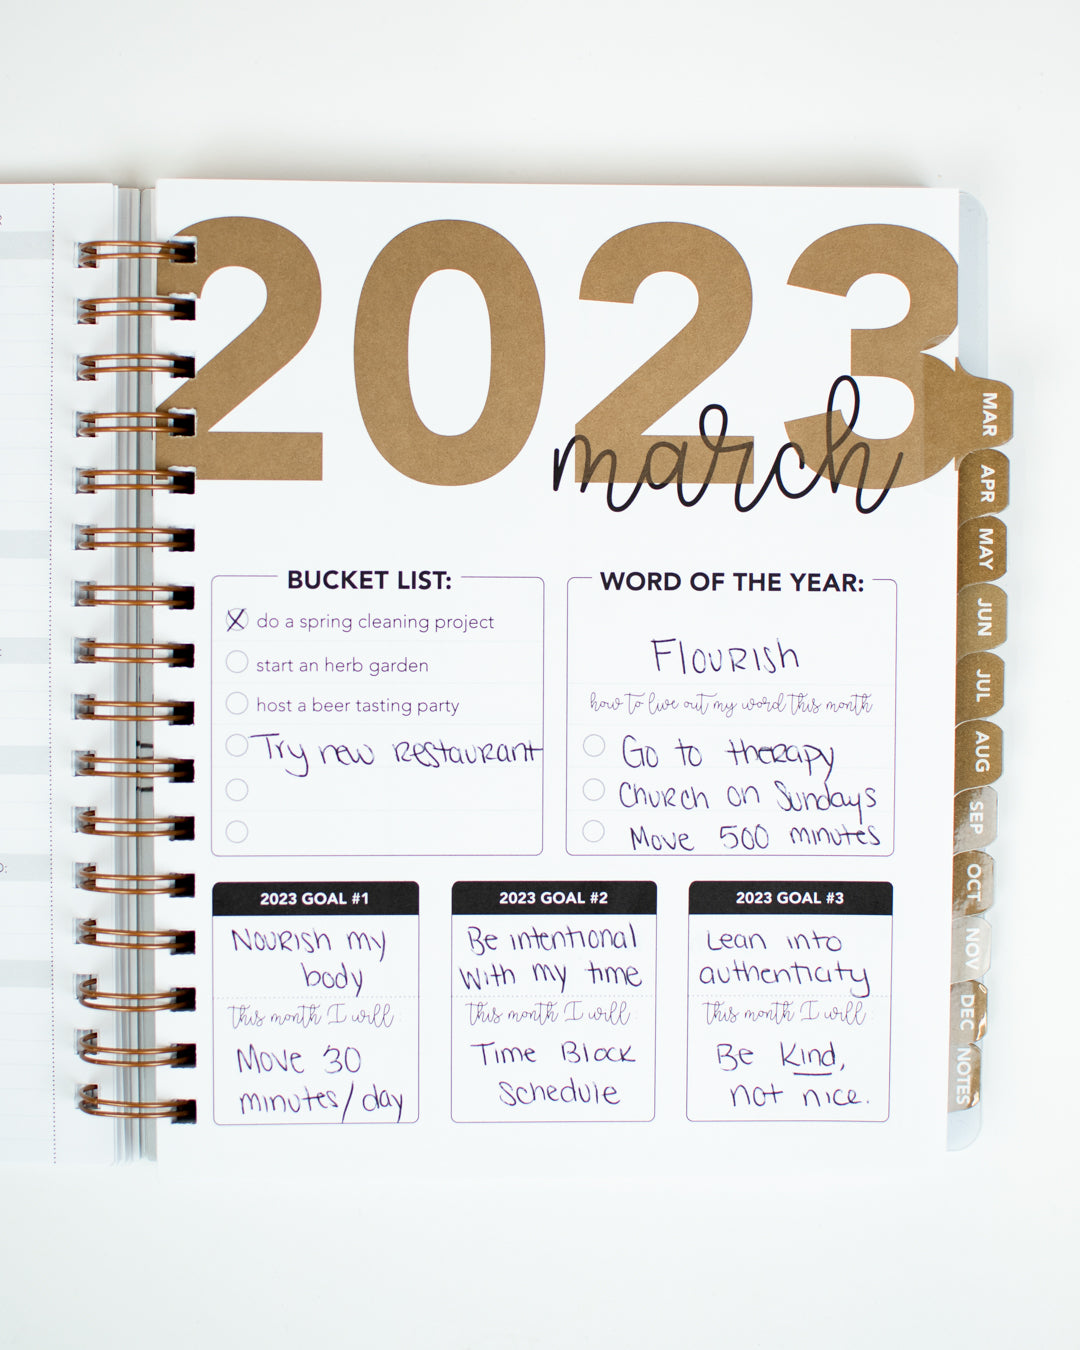 2023
march
BUCKET LIST:
do a spring cleaning project
start an herb garden
host a beer tasting party
Try new restaurant
WORD OF THE YEAR:
Flourish
how to live out my word this month
Go to therapy
Church on Sundays
Move 500 minutes
2023 GOAL #1
Nourish my
body
this month I will:
Move 30
minutes/day
2023 GOAL #2
Be intentional
with my time
this month I will:
Time Block
schedule
2023 GOAL #3
Lean into
authenticity
this month I will:
Be Kind,
not nice.
MAR
APR
MAY
JUN
JUL
AUG
SEP
OCT
NOV
DEC
NOTES